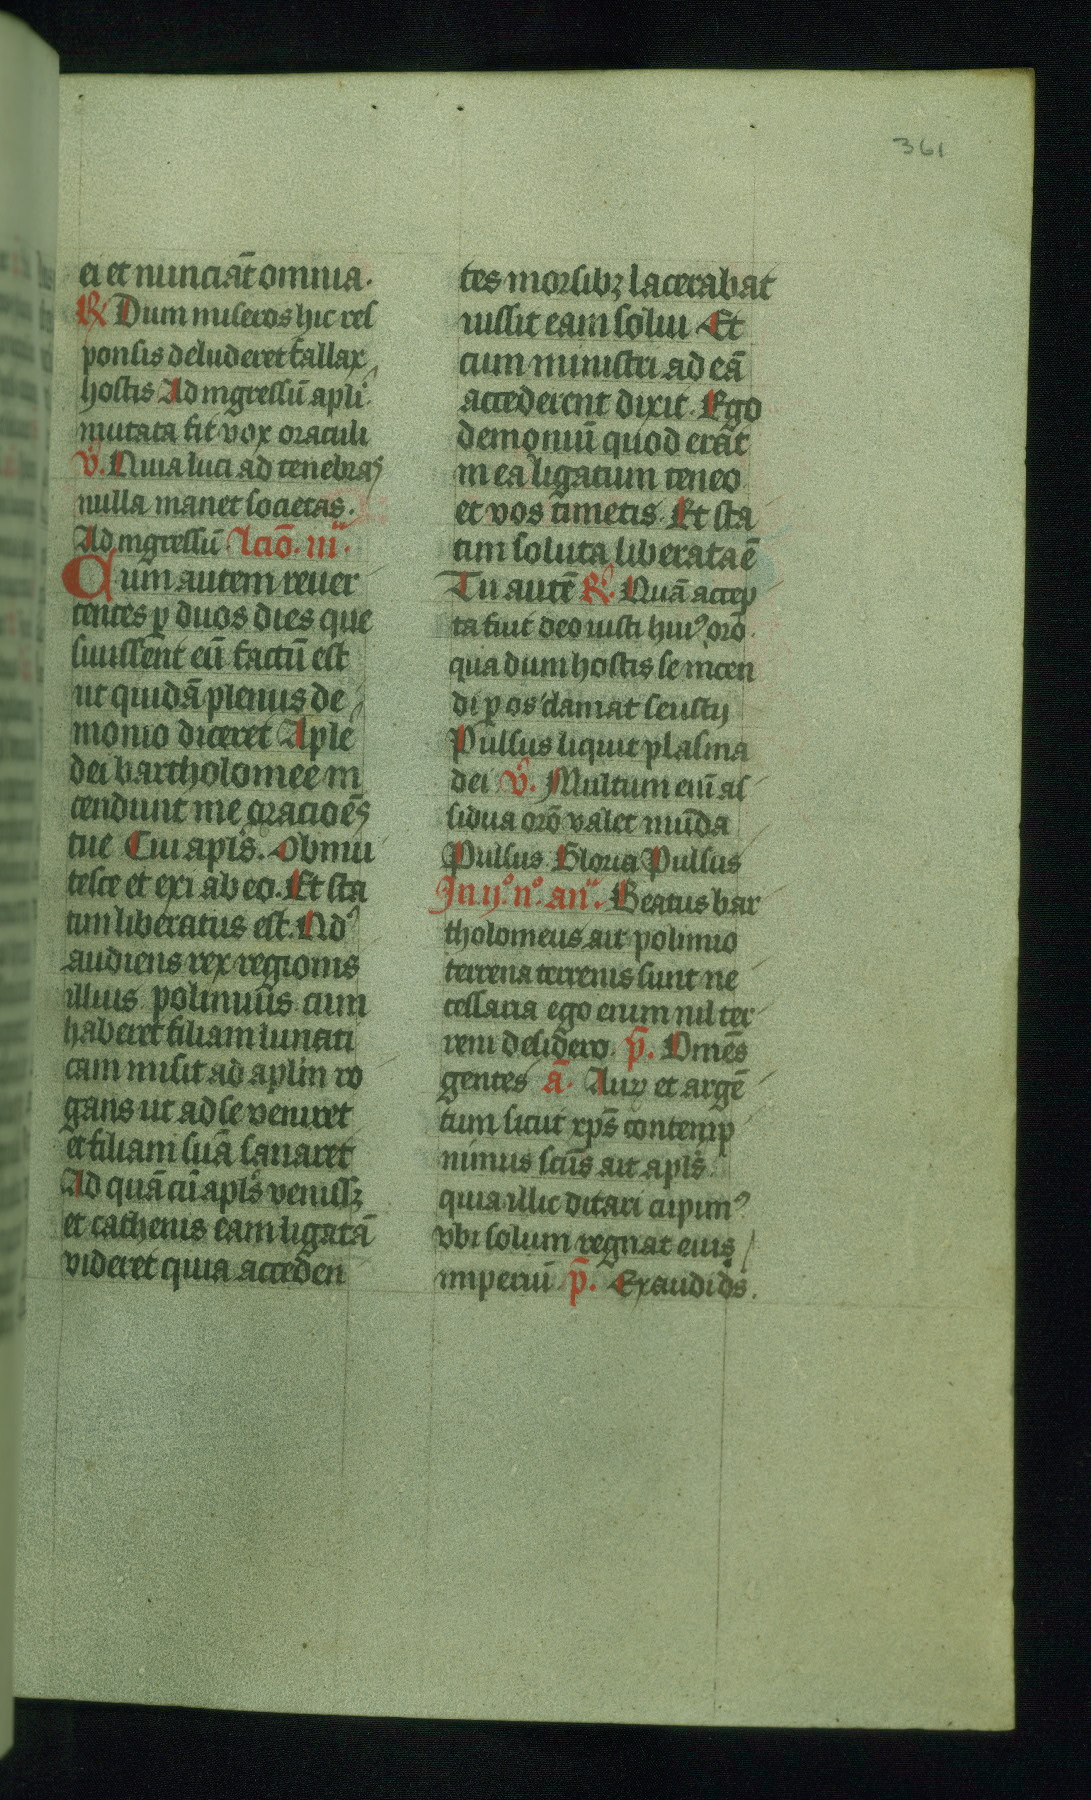 361
ei et nunciāt omnia.
R Dum miseros hic res
ponsis deluderet fallax
hostis Ad ingressū apl̄i
mutata fit vox oraculi
V̄. Quia luci ad tenebras
nulla manet societas.
Ad ingressū. lcīo. iii.
Cum autem reuer
tentes ꝑ duos dies que
siuissent eū factū est
ut quidā plenus de
monio diceret Aple
dei bartholomee in
cendunt me oracioēs
tue Cui apl̄s. Obmu
tesce et exi ab eo. Et sta
tim liberatus est. Qdꝰ
audiens rex regionis
illius polimius cum
haberet filiam lunati
cam misit ad aplm ro
gans ut ad se veniret
et filiam suā sanaret
Ad quā cū apl̄s venissꝫ
et cathenis eam ligatā
videret quia acceden
tes morsibꝫ lacerabat
iussit eam solui Et
cum ministri ad eā
accederent dixit. Ego
demoniū quod erāt
in ea ligatum teneo
et vos timetis. Et sta
tim soluta liberata ē
Tu autē R̄. Quā accep
ta fuit deo iusti huiꝰ orō
qua dum hostis se incen
di ꝑ os clamat seustij
Pulsus liquit plasma
dei V̄. Multum eni as
sidua orō valet mūda
Pulsus Gloria Pulsus
In ijº nº. an̄. Beatus bar
tholomeus ait polimio
terrena terrenis sunt ne
cessaria ego enim nil ter
reni desidero. p̄. Omēs
gentes ā. Auꝝ et argē
tum sicut xp̄s contemp
nimus scūs ait apl̄s
quia illic ditari cupimꝰ
vbi solum regnat eius
imperiū p̄. Exaudi ds.